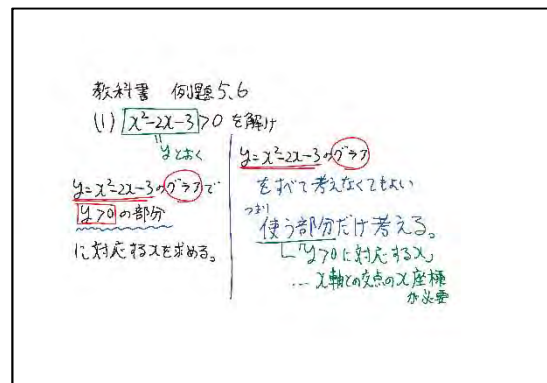 教科書 例題5.6
(1) x²-2x-3>0 を解け
yとおく
y=x²-2x-3のグラフで
y>0の部分
に対応するxを求める。
y=x²-2x-3のグラフ
をすべて考えなくてもよい
つまり
使う部分だけ考える。
y>0に対応するx
… x軸との交点のx座標
が必要